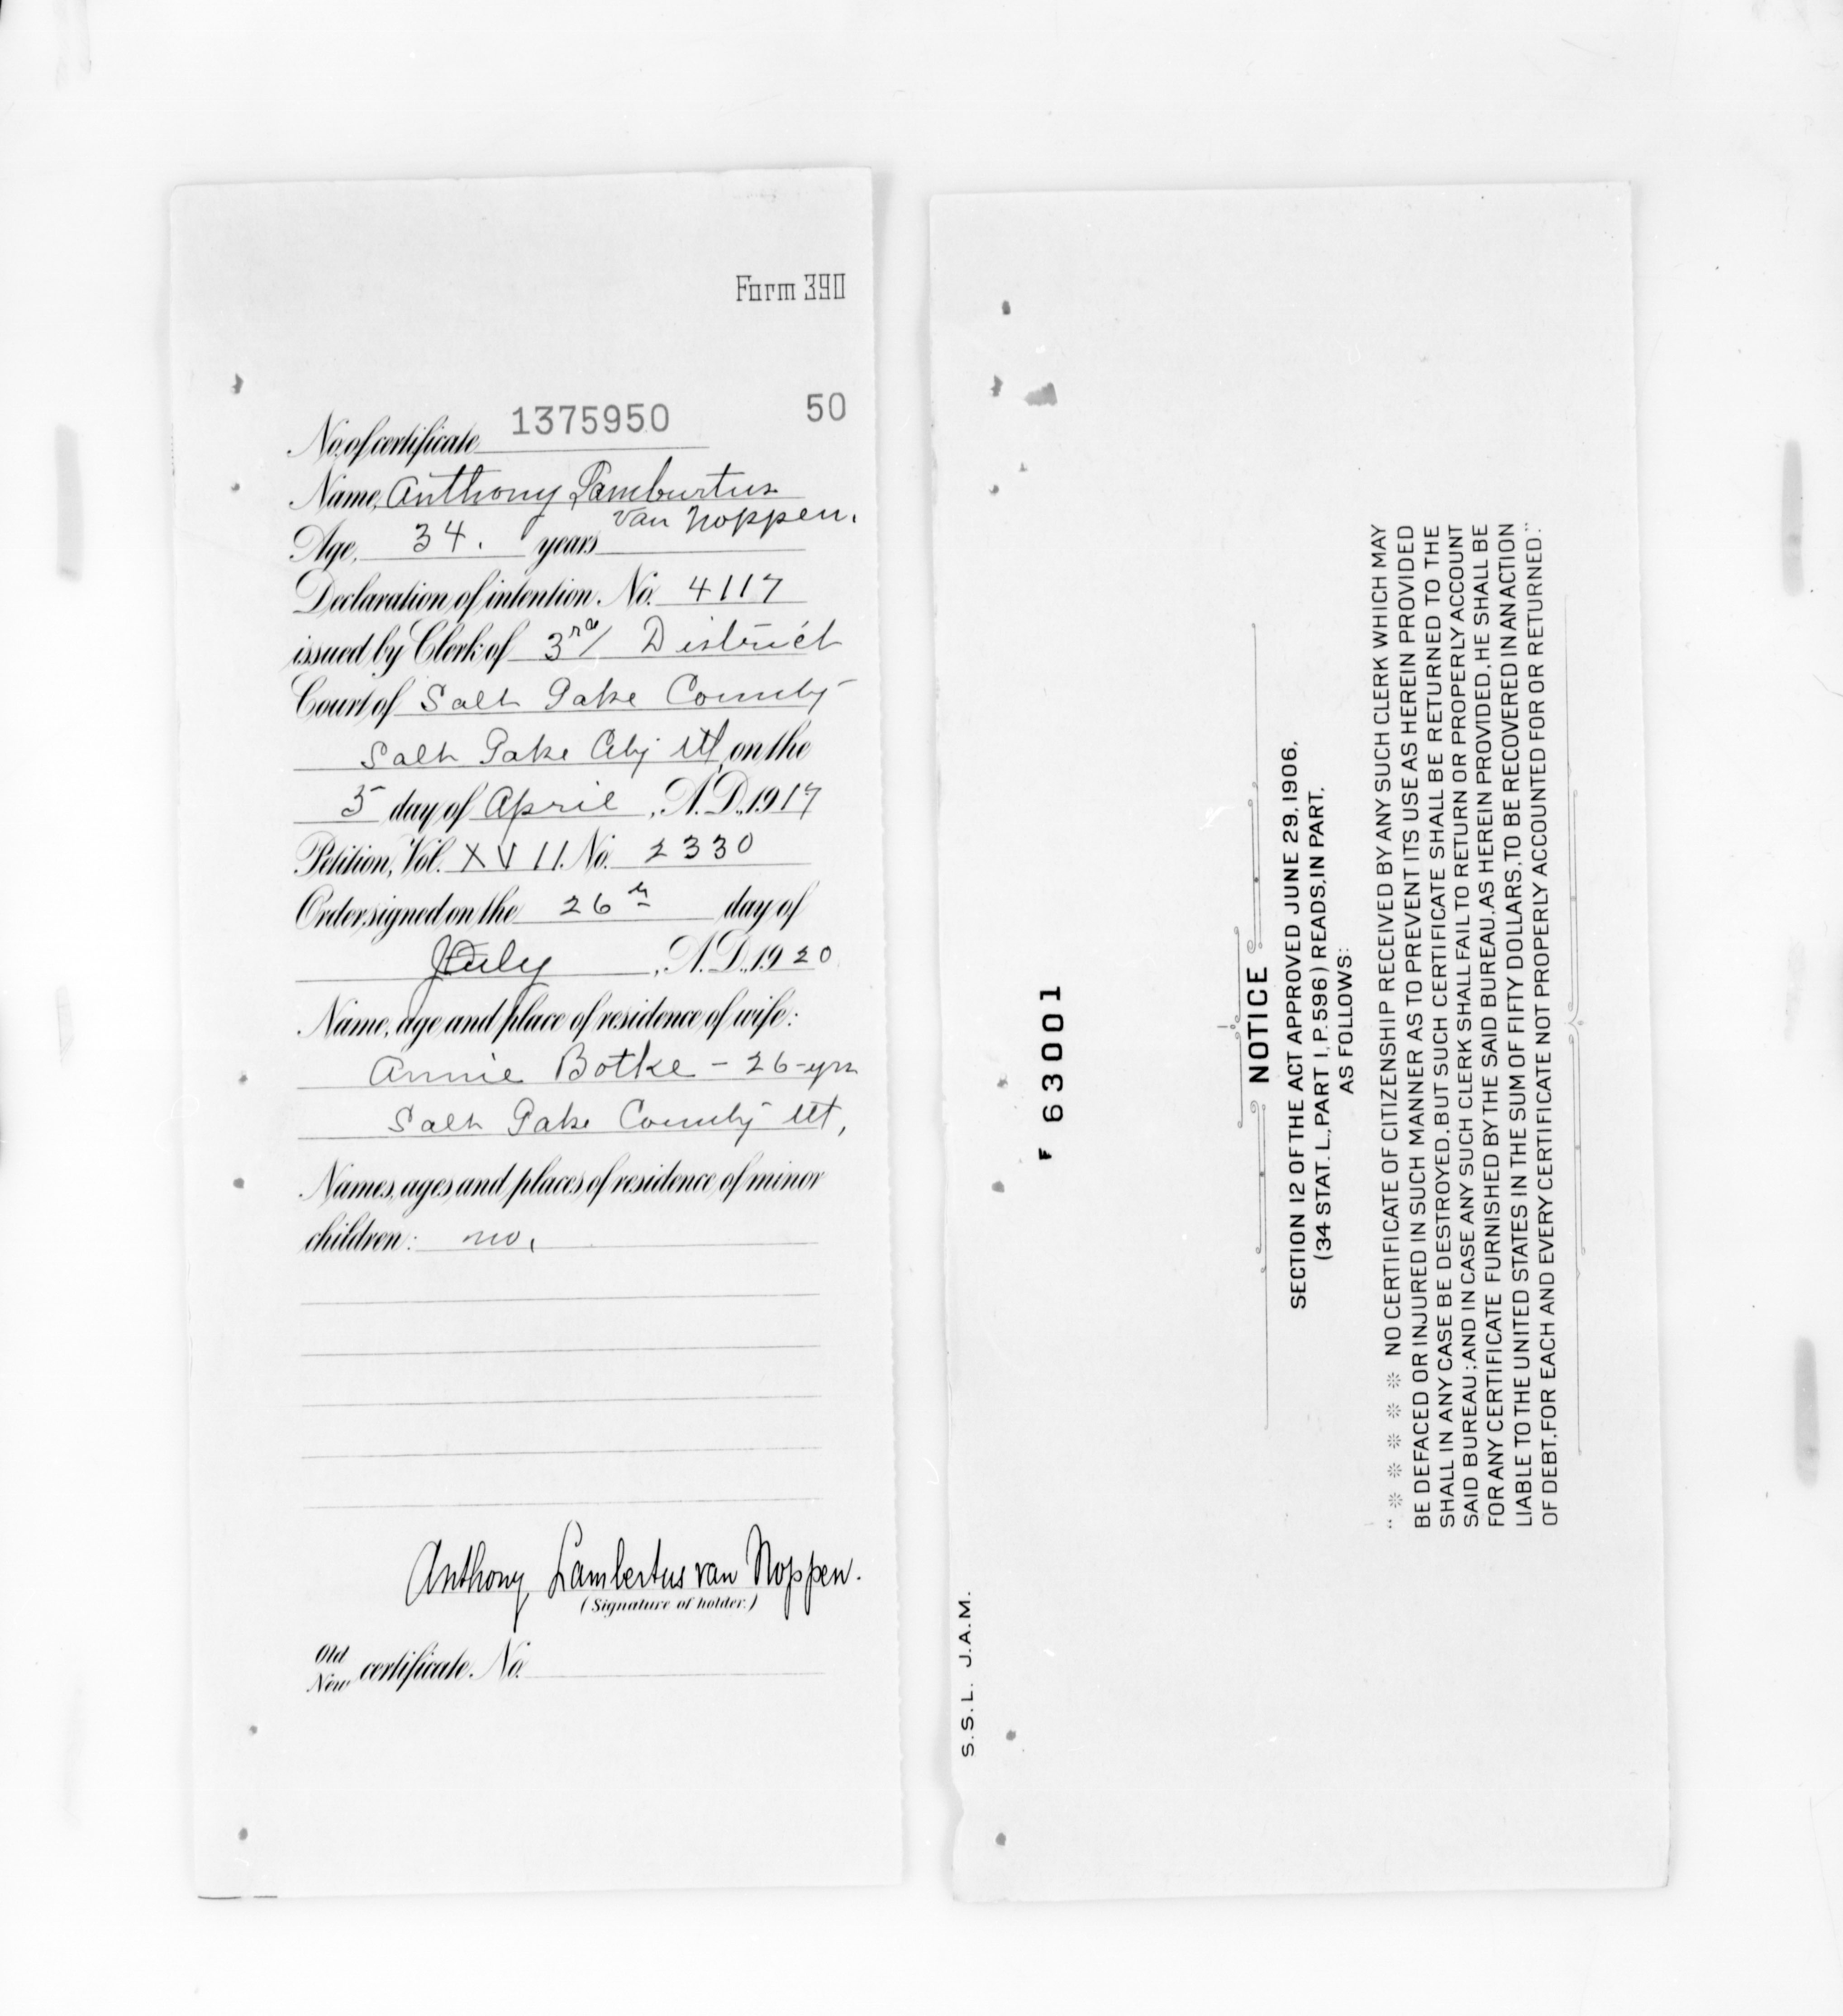 Form 390
50
No. of certificate 1375950
Name, Anthony Lamburtus
van Noppen.
Age, 34. years
Declaration of intention. No. 4117
issued by Clerk of 3rd District
Court of Salt Lake County
Salt Lake City Ut on the
5 day of April, A.D., 1917
Petition, Vol. XVII. No. 2330
Order signed on the 26th day of
July, A.D., 1920
Name, age and place of residence of wife:
Annie Botke - 26-yrs
Salt Lake County Ut,
Names, ages and places of residence of minor
children: no.
Anthony Lambertus van Noppen.
(Signature of holder.)
Old
New certificate. No.
S.S.L. J.A.M.
F 63001
NOTICE
SECTION 12 OF THE ACT APPROVED JUNE 29, 1906,
(34 STAT. L., PART 1, P. 596) READS, IN PART,
AS FOLLOWS:
"※ ※ ※ ※ ※ NO CERTIFICATE OF CITIZENSHIP RECEIVED BY ANY SUCH CLERK WHICH MAY
BE DEFACED OR INJURED IN SUCH MANNER AS TO PREVENT ITS USE AS HEREIN PROVIDED
SHALL IN ANY CASE BE DESTROYED, BUT SUCH CERTIFICATE SHALL BE RETURNED TO THE
SAID BUREAU; AND IN CASE ANY SUCH CLERK SHALL FAIL TO RETURN OR PROPERLY ACCOUNT
FOR ANY CERTIFICATE FURNISHED BY THE SAID BUREAU, AS HEREIN PROVIDED, HE SHALL BE
LIABLE TO THE UNITED STATES IN THE SUM OF FIFTY DOLLARS, TO BE RECOVERED IN AN ACTION
OF DEBT, FOR EACH AND EVERY CERTIFICATE NOT PROPERLY ACCOUNTED FOR OR RETURNED."